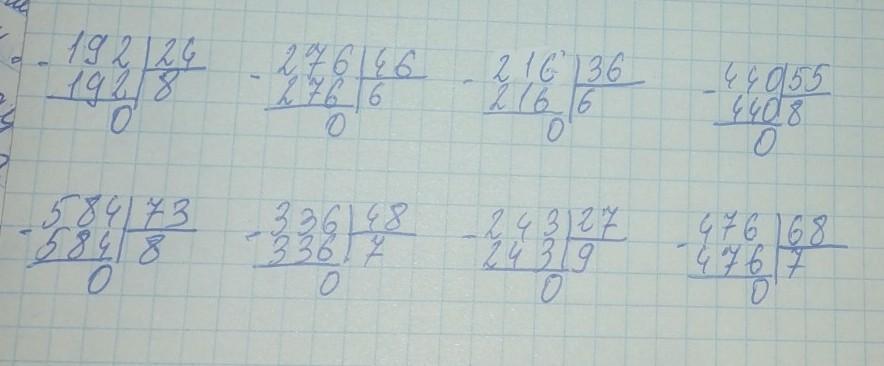 - 192 24 - 276 46 - 216 36 - 440 55
192 8 276 6 216 6 440 8
0 0 0 0
- 584 73 - 336 48 - 243 27 - 476 68
584 8 336 7 243 9 476 7
0 0 0 0